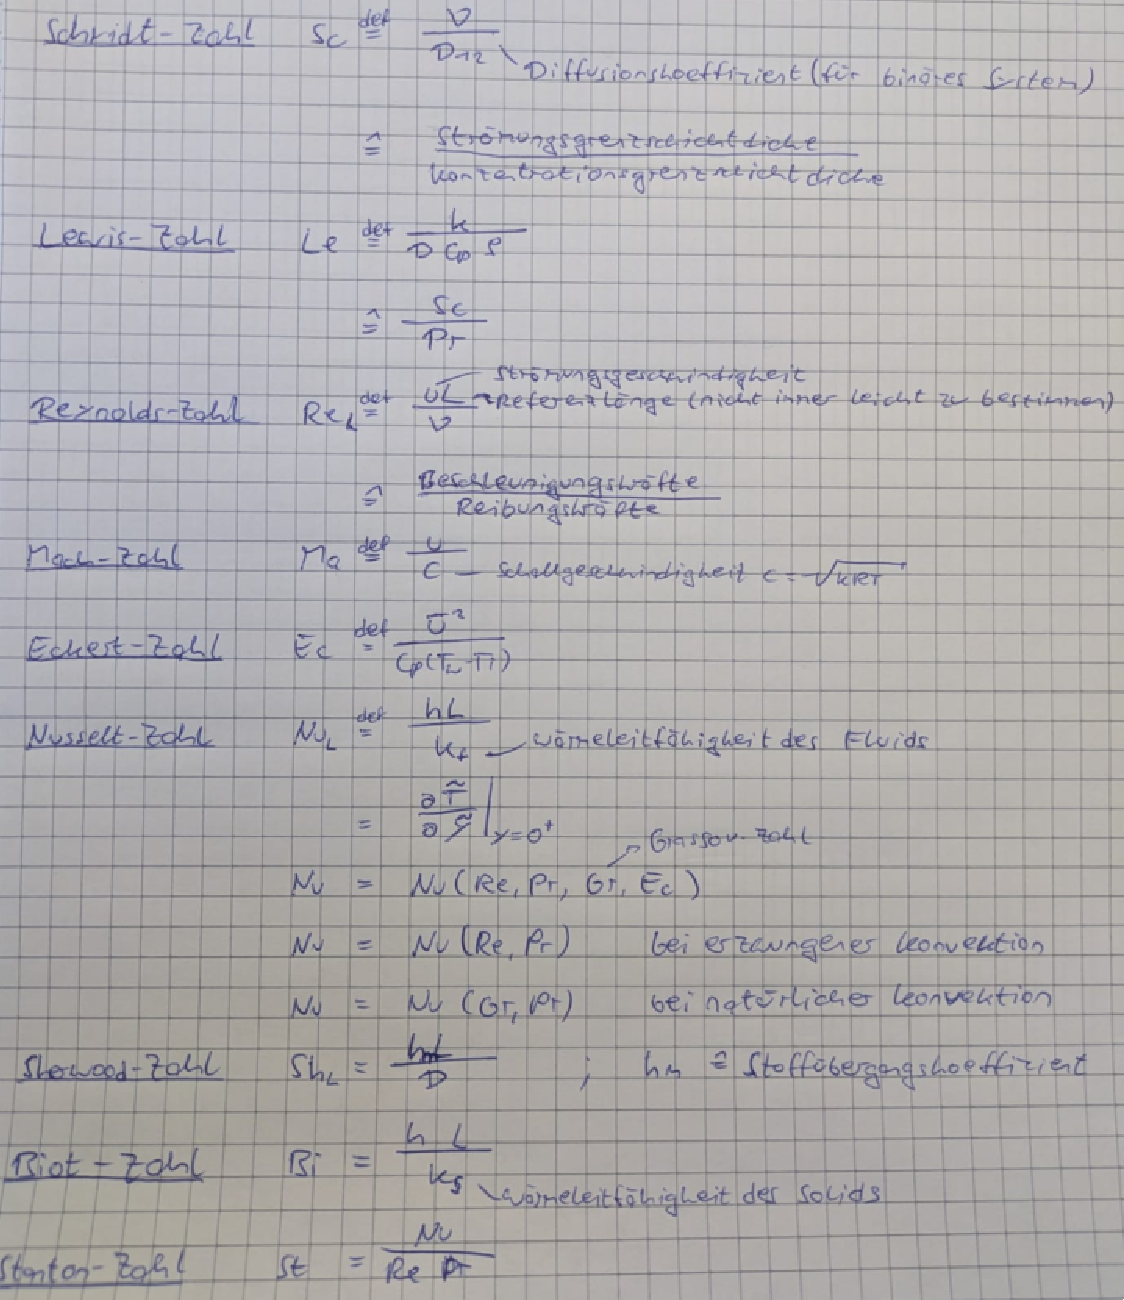 Schmidt-Zahl Sc ≝ ν / D₁₂
Diffusionskoeffizient (für binäres System)
≙ Strömungsgrenzschichtdicke / Konzentrationsgrenzschichtdicke
Lewis-Zahl Le ≝ k / D Cp ρ
≙ Sc / Pr
Strömungsgeschwindigkeit
Reynolds-Zahl Re_L ≝ UL / ν Referenzlänge (nicht immer leicht zu bestimmen)
≙ Beschleunigungskräfte / Reibungskräfte
Mach-Zahl Ma ≝ U / C Schallgeschwindigkeit c = √kRT
Eckert-Zahl Ec ≝ U² / Cp(T₂-T₁)
Nusselt-Zahl Nu_L ≝ hL / k_f Wärmeleitfähigkeit des Fluids
= ∂T̃ / ∂ỹ |y=0⁺
Grassov-Zahl
Nu = Nu(Re, Pr, Gr, Ec)
Nu = Nu(Re, Pr) bei erzwungener Konvektion
Nu = Nu(Gr, Pr) bei natürlicher Konvektion
Sherwood-Zahl Sh_L = hmL / D ; hm ≙ Stoffübergangskoeffizient
Biot-Zahl Bi = h L / k_s
Wärmeleitfähigkeit des Solids
Stanton-Zahl St = Nu / Re Pr